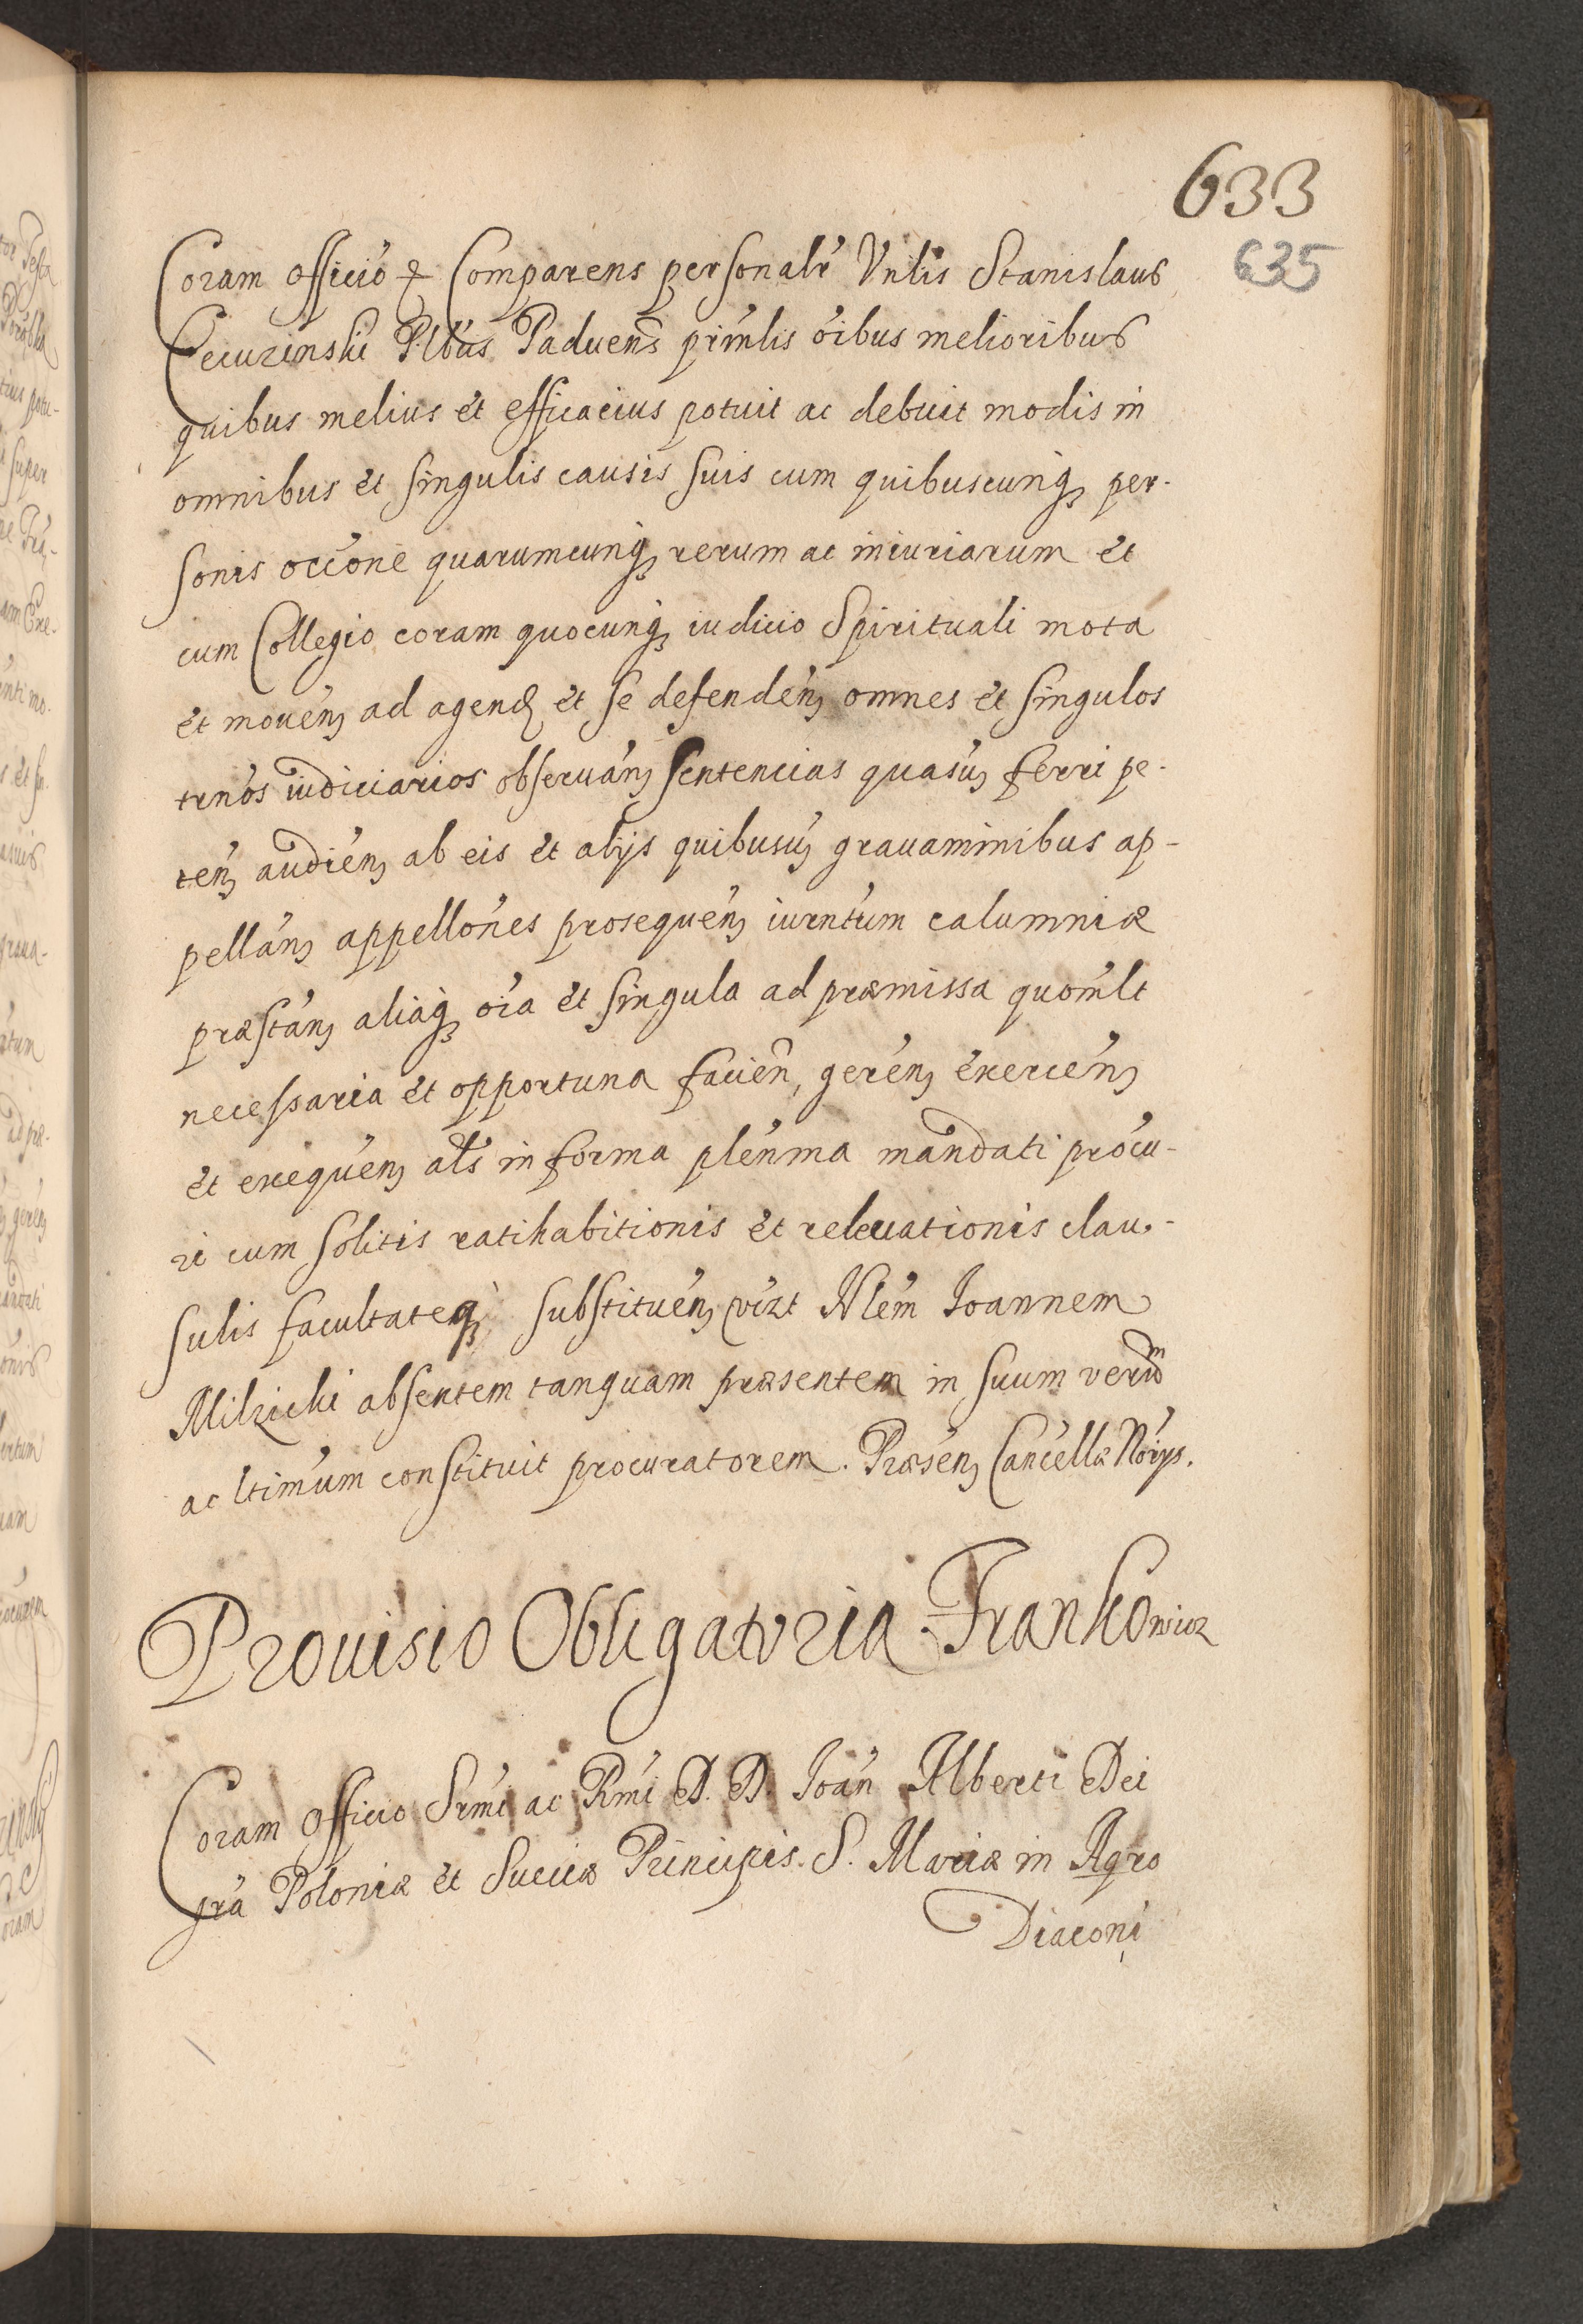 633
635
Coram officio & Comparens personalr Vnlis Stanislaus
Plbus Paduens prīnlis oībus melioribus
quibus melius et efficacius potuit ac debuit modis in
omnibus et singulis causis suis cum quibuscunq per-
sonis occōne quarumcunq rerum ac iniuriarum et
cum Collegio coram quocunq iudicio Spirituali mota
et mouen ad agend et se defenden omnes et singulos
trnos iudiciarios obseruan sentencias quasu ferri pe-
ten audien ab eis et alijs quibusu grauaminibus ap-
pellan appellones prosequen iurntum calumniæ
præstan aliaq oia et singula ad præmissa quomlt
necessaria et opportuna facien, geren exercen
et exequen als in forma plenma mandati procu-
ri cum solitis ratihabitionis et releuationis clau-
sulis facultateq substituen vizt Nlem Ioannem
Milzicki absentem tanquam præsentem in suum verum
ac ltimum constituit procuratorem. Præsen Cancellæ Norys.
Prouisio Obligatoria Frankowicz
Coram Officio Srmi ac Rmi D. D. Ioan Alberti Dei
gra Poloniæ et Sueciæ Principis. S. Mariæ in Aqro
Diaconi